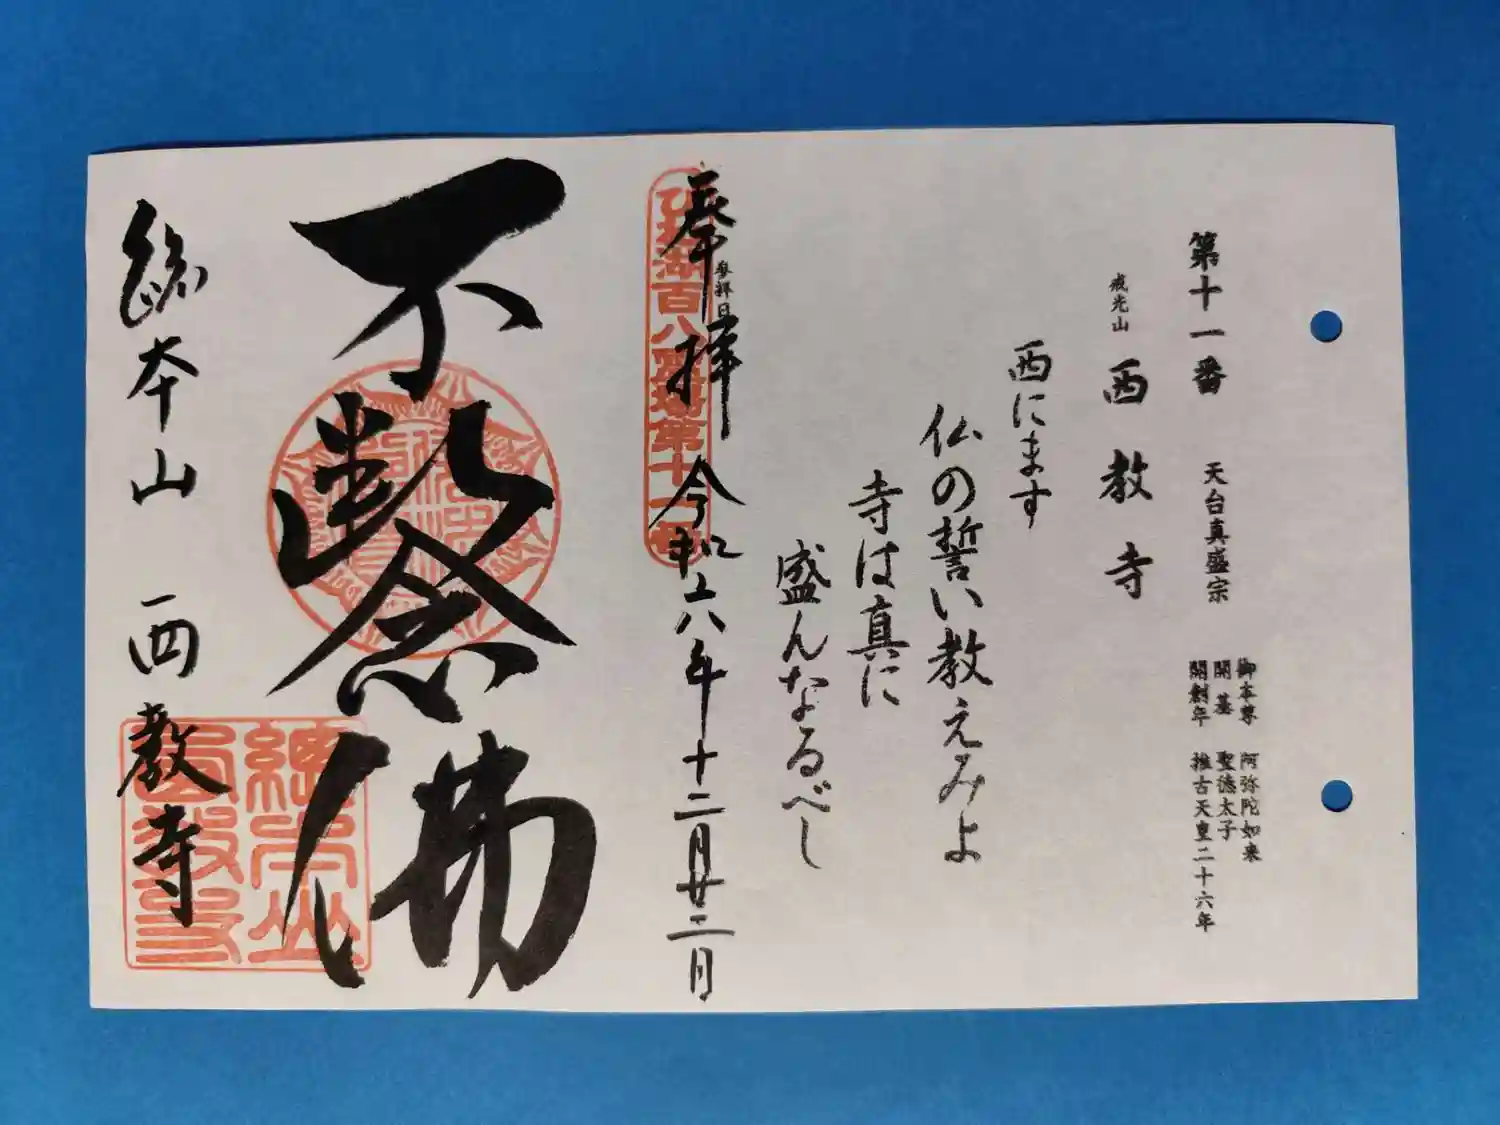 第十一番 天台真盛宗
御本尊 阿弥陀如来
開基 聖徳太子
開創年 推古天皇二十六年
戒光山 西教寺
西にます
仏の誓い教えみよ
寺は真に
盛んなるべし
参拝日
奉拝 令和六年十二月廿二日
琵琶湖百八霊場第十一番
不断念佛
総本山 西教寺
總本山
西教寺